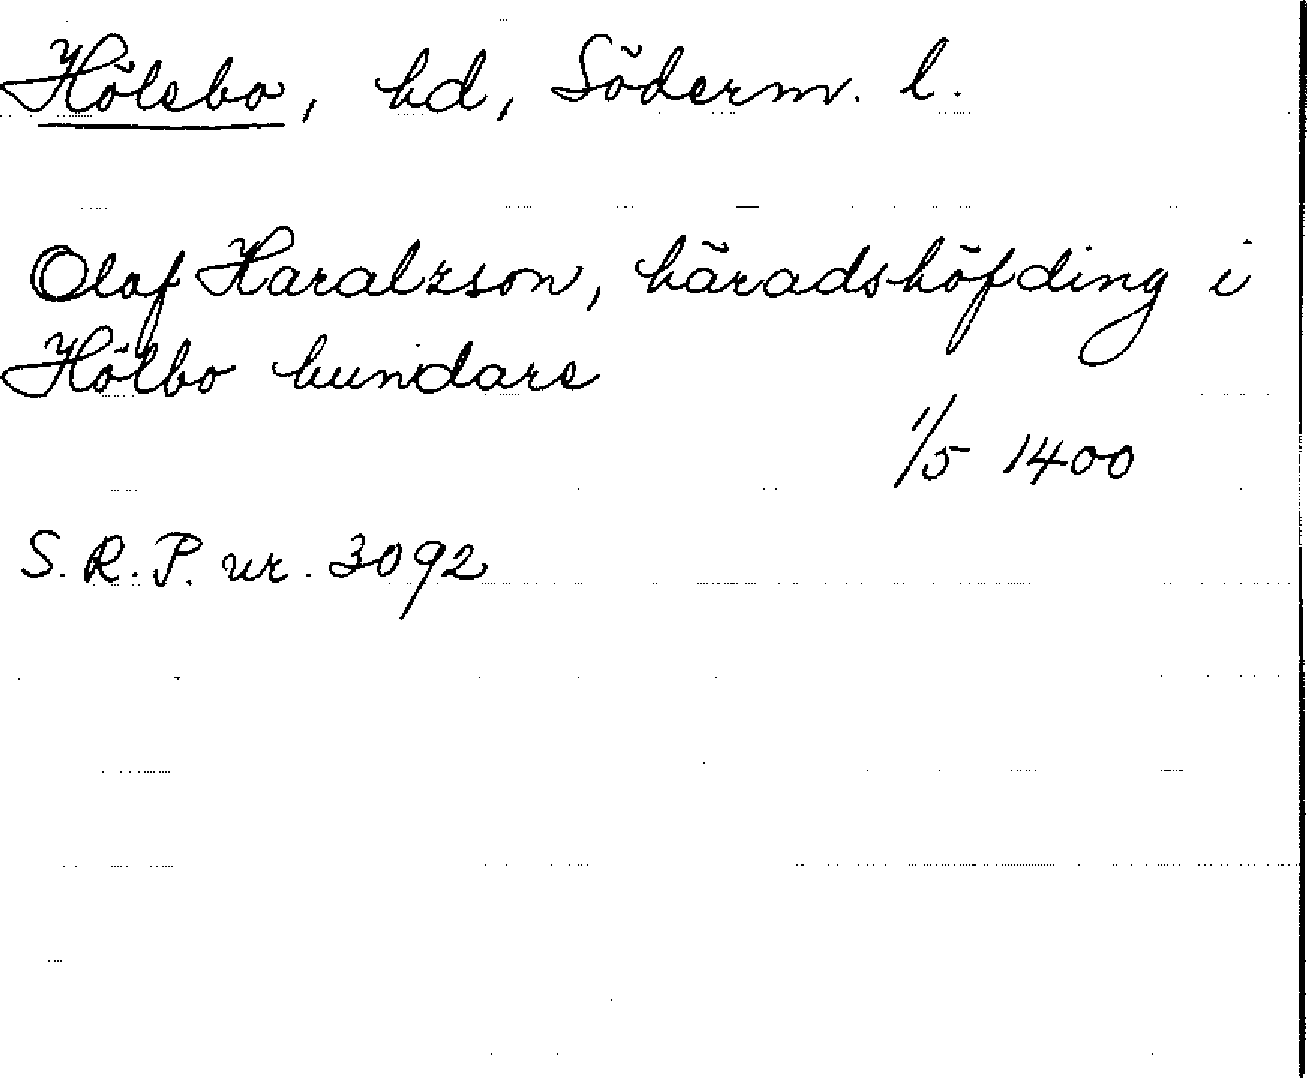 Hölebo, hd, Söderm. l.
Olaf Haralzson, häradshöfding i
Hölbo hundare
1/5 1400
S. R. P. nr. 3092